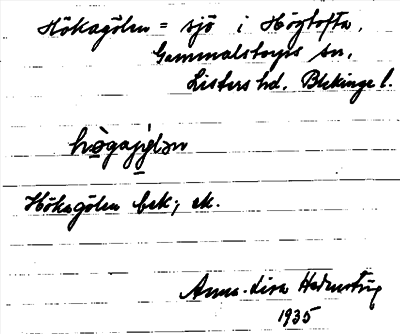 Hökagölen = sjö i Högtofta,
Gammalstorps sn.
Listers hd. Blekinge l.
hö̀gajø̀lən
Hökagölen bek; ek.
Anna-Lisa
1935